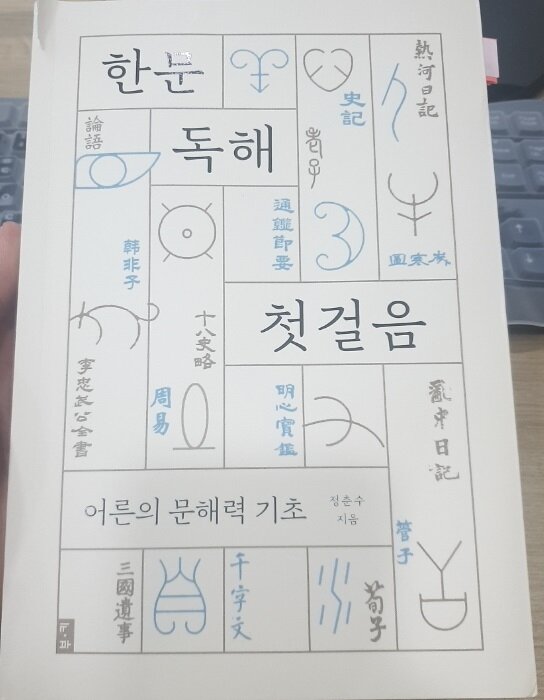 한문
熱河日記
史記
論語
독해
老子
通鑑節要
韩非子
歲寒圖
첫걸음
十八史略
李忠武公全書
周易
明心寶鑑
亂中日記
어른의 문해력 기초
정춘수
지음
管子
三國遺事
千字文
荀子